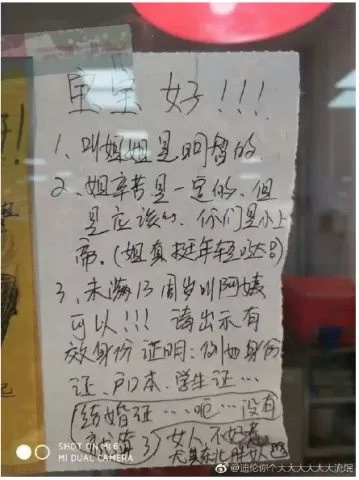 宝宝好!!!
1、叫姐姐是明智的
2、姐辛苦是一定的、但
是应该的、你们是小上
帝。(姐真挺年轻哒8)
3、未满13周岁叫阿姨
可以!!! 请出示有
效身份证明:例如身份
证、户口本、学生证…
(结婚证…呃…没有
3)女人、不好惹
尤其在化胖女人
SHOT ON MI 6
MI DUAL CAMERA
@迪伦你个大大大大大大流氓